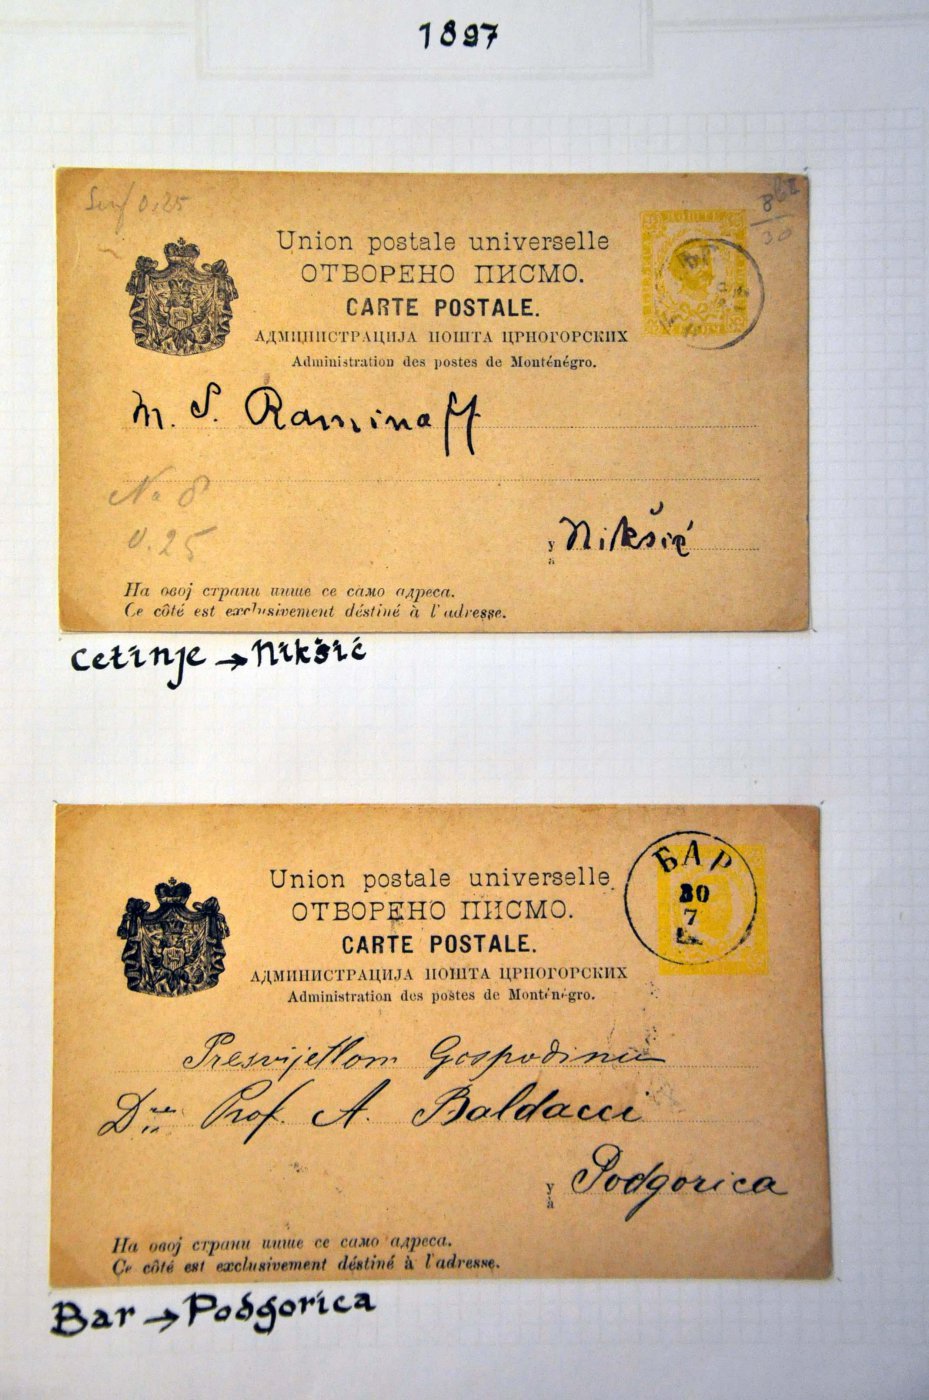 1897
0.25
8
30
Union postale universelle
ОТВОРЕНО ПИСМО.
CARTE POSTALE.
АДМИНИСТРАЦИЈА ПОШТА ЦРНОГОРСКИХ
Administration des postes de Monténégro.
M. S. Raminaff
No 8
0.25
у Nikšić
à
На овој страни пише се само адреса.
Ce côté est exclusivement déstiné à l'adresse.
Cetinje → Nikšić
БАР
30
7
Union postale universelle
ОТВОРЕНО ПИСМО.
CARTE POSTALE.
АДМИНИСТРАЦИЈА ПОШТА ЦРНОГОРСКИХ
Administration des postes de Monténégro.
Presvijetlom Gospodinu
Dru Prof. A. Baldacci
у Podgorica
à
На овој страни пише се само адреса.
Ce côté est exclusivement déstiné à l'adresse.
Bar → Podgorica